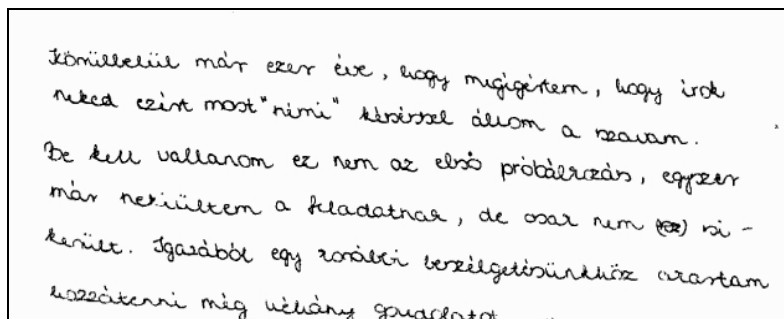 Körülbelül már ezer éve, hogy megígértem, hogy írok
neked ezért most "némi" késéssel állom a szavam.
Be kell vallanom ez nem az első próbálkozás, egyszer
már nekiültem a feladatnak, de csak nem (ez) si-
került. Igazából egy korábbi beszélgetésünkhöz akartam
hozzátenni még néhány gondolatot